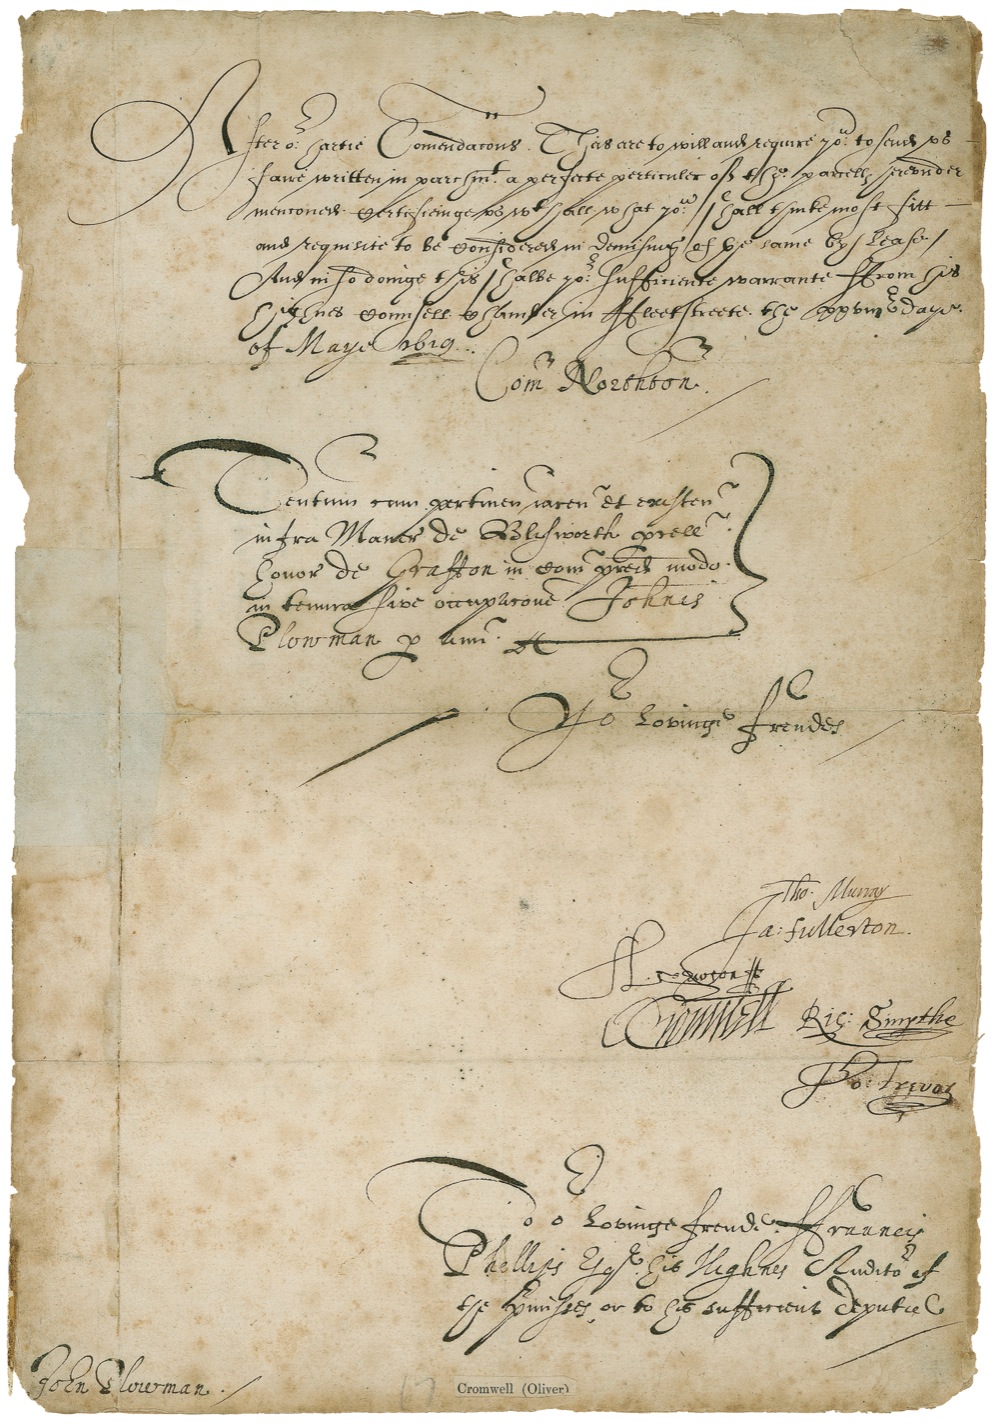 After or hartie Comendacons. This are to will and require you to send vs
faire written in parchmt a perfecte perticuler off the parcell herevnder
menconed. Certefieinge vs wthall what you shall thinke most fitt
and requisite to be considered in demisinge of the same by Lease /
And in so doinge this shalbe yor sufficiente warrante ffrom his
highnes Counsell Chamber in ffleetstreete. the xxviijth daye
of Maye 1619
Com Northton.
Tentum cum pertinen iacen et existen
infra Maner de Blisworth prcell
honor de Grafton in Com pred modo
in tenura sive occupacone Johnis
Plowman p ann
Yor Lovinge frendes
Tho. Murray
Ja: fullerton.
Cromwell Ric: Smythe
Tho: Trevor
To or Lovinge frende ffrancis
Phellips Esqr. his Highnes Auditor of
the pmisses, or to his sufficient deputie
John Plowman.
Cromwell (Oliver)